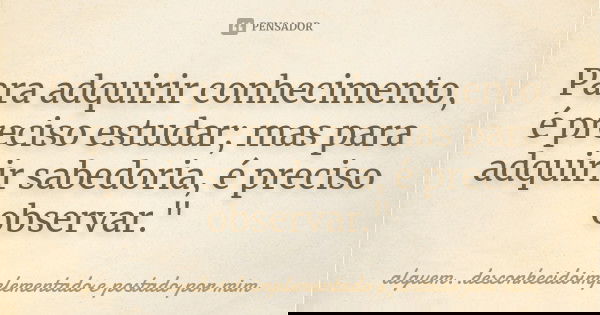 PENSADOR
Para adquirir conhecimento,
é preciso estudar; mas para
adquirir sabedoria, é preciso
observar."
alguem...desconhecidoimplementado e postado por mim